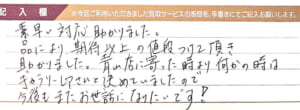 記入欄
※今回ご利用いただきました買取サービスの感想を、手書きにてご記入お願いします。
素早い対応助かりました。
品により、期待以上の値段つけて頂き
助かりました。青山店に寄った時より何かの時は
さんと決めていましたので
今後もまたお世話になりたいです!